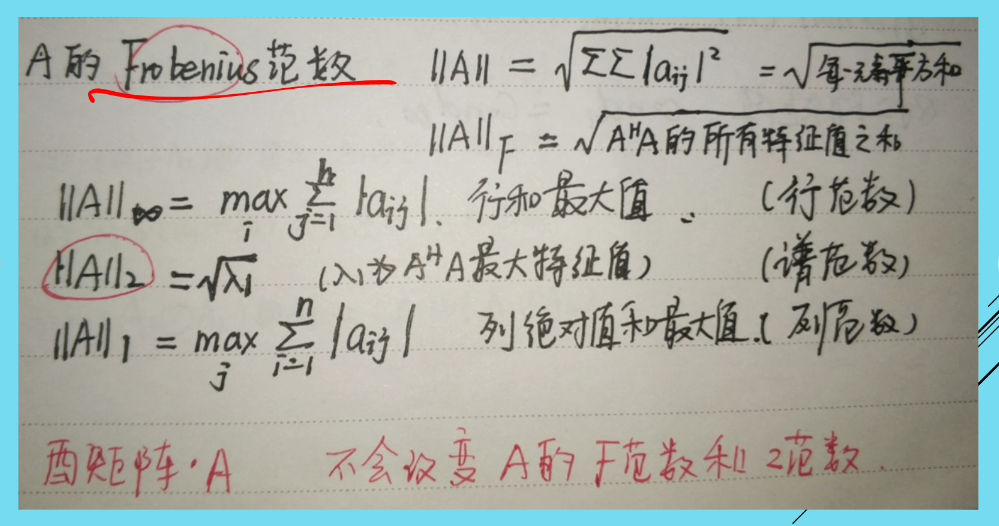 A 的 Frobenius 范数 ||A|| = √ΣΣ|aij|² = √每一元素平方和
||A||F = √AᴴA的所有特征值之和
||A||∞ = max i Σ j=1 n |aij|. 行和最大值. (行范数)
||A||2 = √λ1 (λ1为AᴴA最大特征值) (谱范数)
||A||1 = max j Σ i=1 n |aij| 列绝对值和最大值.(列范数)
酉矩阵·A 不会改变 A的 F范数和 2范数.